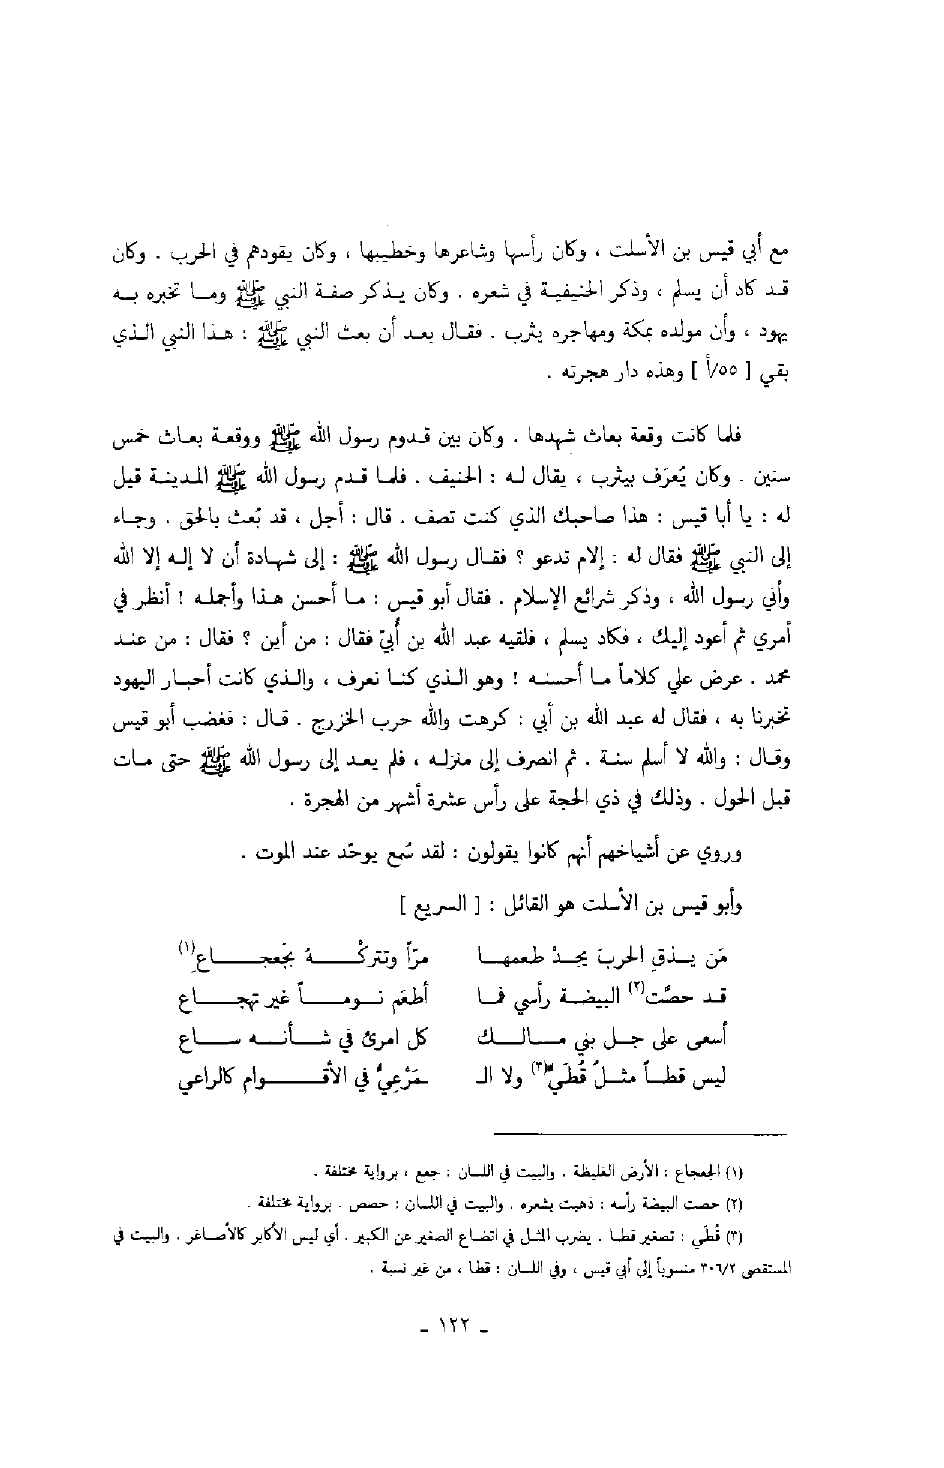 مع أبي قيس بن الأسلت ، وكان رأسها وشاعرها وخطيبها ، وكان يقودهم في الحرب . وكان
قد كاد أن يسلم ، وذكر الحنيفية في شعره . وكان يذكر صفة النبي ﷺ وما تخبره به
يهود ، وأن مولده بمكة ومهاجره يثرب . فقال بعد أن بعث النبي ﷺ : هذا النبي الذي
بقي [ ٥٥/أ ] وهذه دار هجرته .
فلما كانت وقعة بعاث شهدها . وكان بين قدوم رسول الله ﷺ ووقعة بعاث خمس
سنين . وكان يُعرَف بيثرب ، يقال له : الحنيف . فلما قدم رسول الله ﷺ المدينة قيل
له : يا أبا قيس : هذا صاحبك الذي كنت تصف . قال : أجل ، قد بُعث بالحق . وجاء
إلى النبي ﷺ فقال له : إلام تدعو ؟ فقال رسول الله ﷺ : إلى شهادة أن لا إله إلا الله
وأني رسول الله ، وذكر شرائع الإسلام . فقال أبو قيس : ما أحسن هذا وأجمله ! أنظر في
أمري ثم أعود إليك ، فكاد يسلم ، فلقيه عبد الله بن أُبيّ فقال : من أين ؟ فقال : من عند
محمد . عرض علي كلاماً ما أحسنه ! وهو الذي كنا نعرف ، والذي كانت أحبار اليهود
تخبرنا به ، فقال له عبد الله بن أبي : كرهت والله حرب الخزرج . قال : فغضب أبو قيس
وقال : والله لا أسلم سنة . ثم انصرف إلى منزله ، فلم يعد إلى رسول الله ﷺ حتى مات
قبل الحول . وذلك في ذي الحجة على رأس عشرة أشهر من الهجرة .
وروي عن أشياخهم أنهم كانوا يقولون : لقد سُمع يوحّد عند الموت .
وأبو قيس بن الأسلت هو القائل : [ السريع ]
مَن يذقِ الحربَ يجدْ طعمها مرّاً وتتركْهُ بجَعجاع(١)
قد حصَّت(٢) البيضة رأسي فما أطعَم نوماً غير تهجاع
أسعى على جل بني مالك كل امرئ في شأنه ساع
ليس قطاً مثلُ قُطَيٍّ(٣) ولا الـ ـمَرْعِيُّ في الأقوام كالراعي
(١) الجعجاع : الأرض الغليظة . والبيت في اللسان : جمع ، برواية مختلفة .
(٢) حصت البيضة رأسه : ذهبت بشعره . والبيت في اللسان : حصص . برواية مختلفة .
(٣) قُطَي : تصغير قطا . يضرب المثل في اتضاع الصغير عن الكبير . أي ليس الأكابر كالأصاغر . والبيت في
المستقصى ٣٠٦/٢ منسوباً إلى أبي قيس ، وفي اللسان : قطا ، من غير نسبة .
- ١٢٢ -